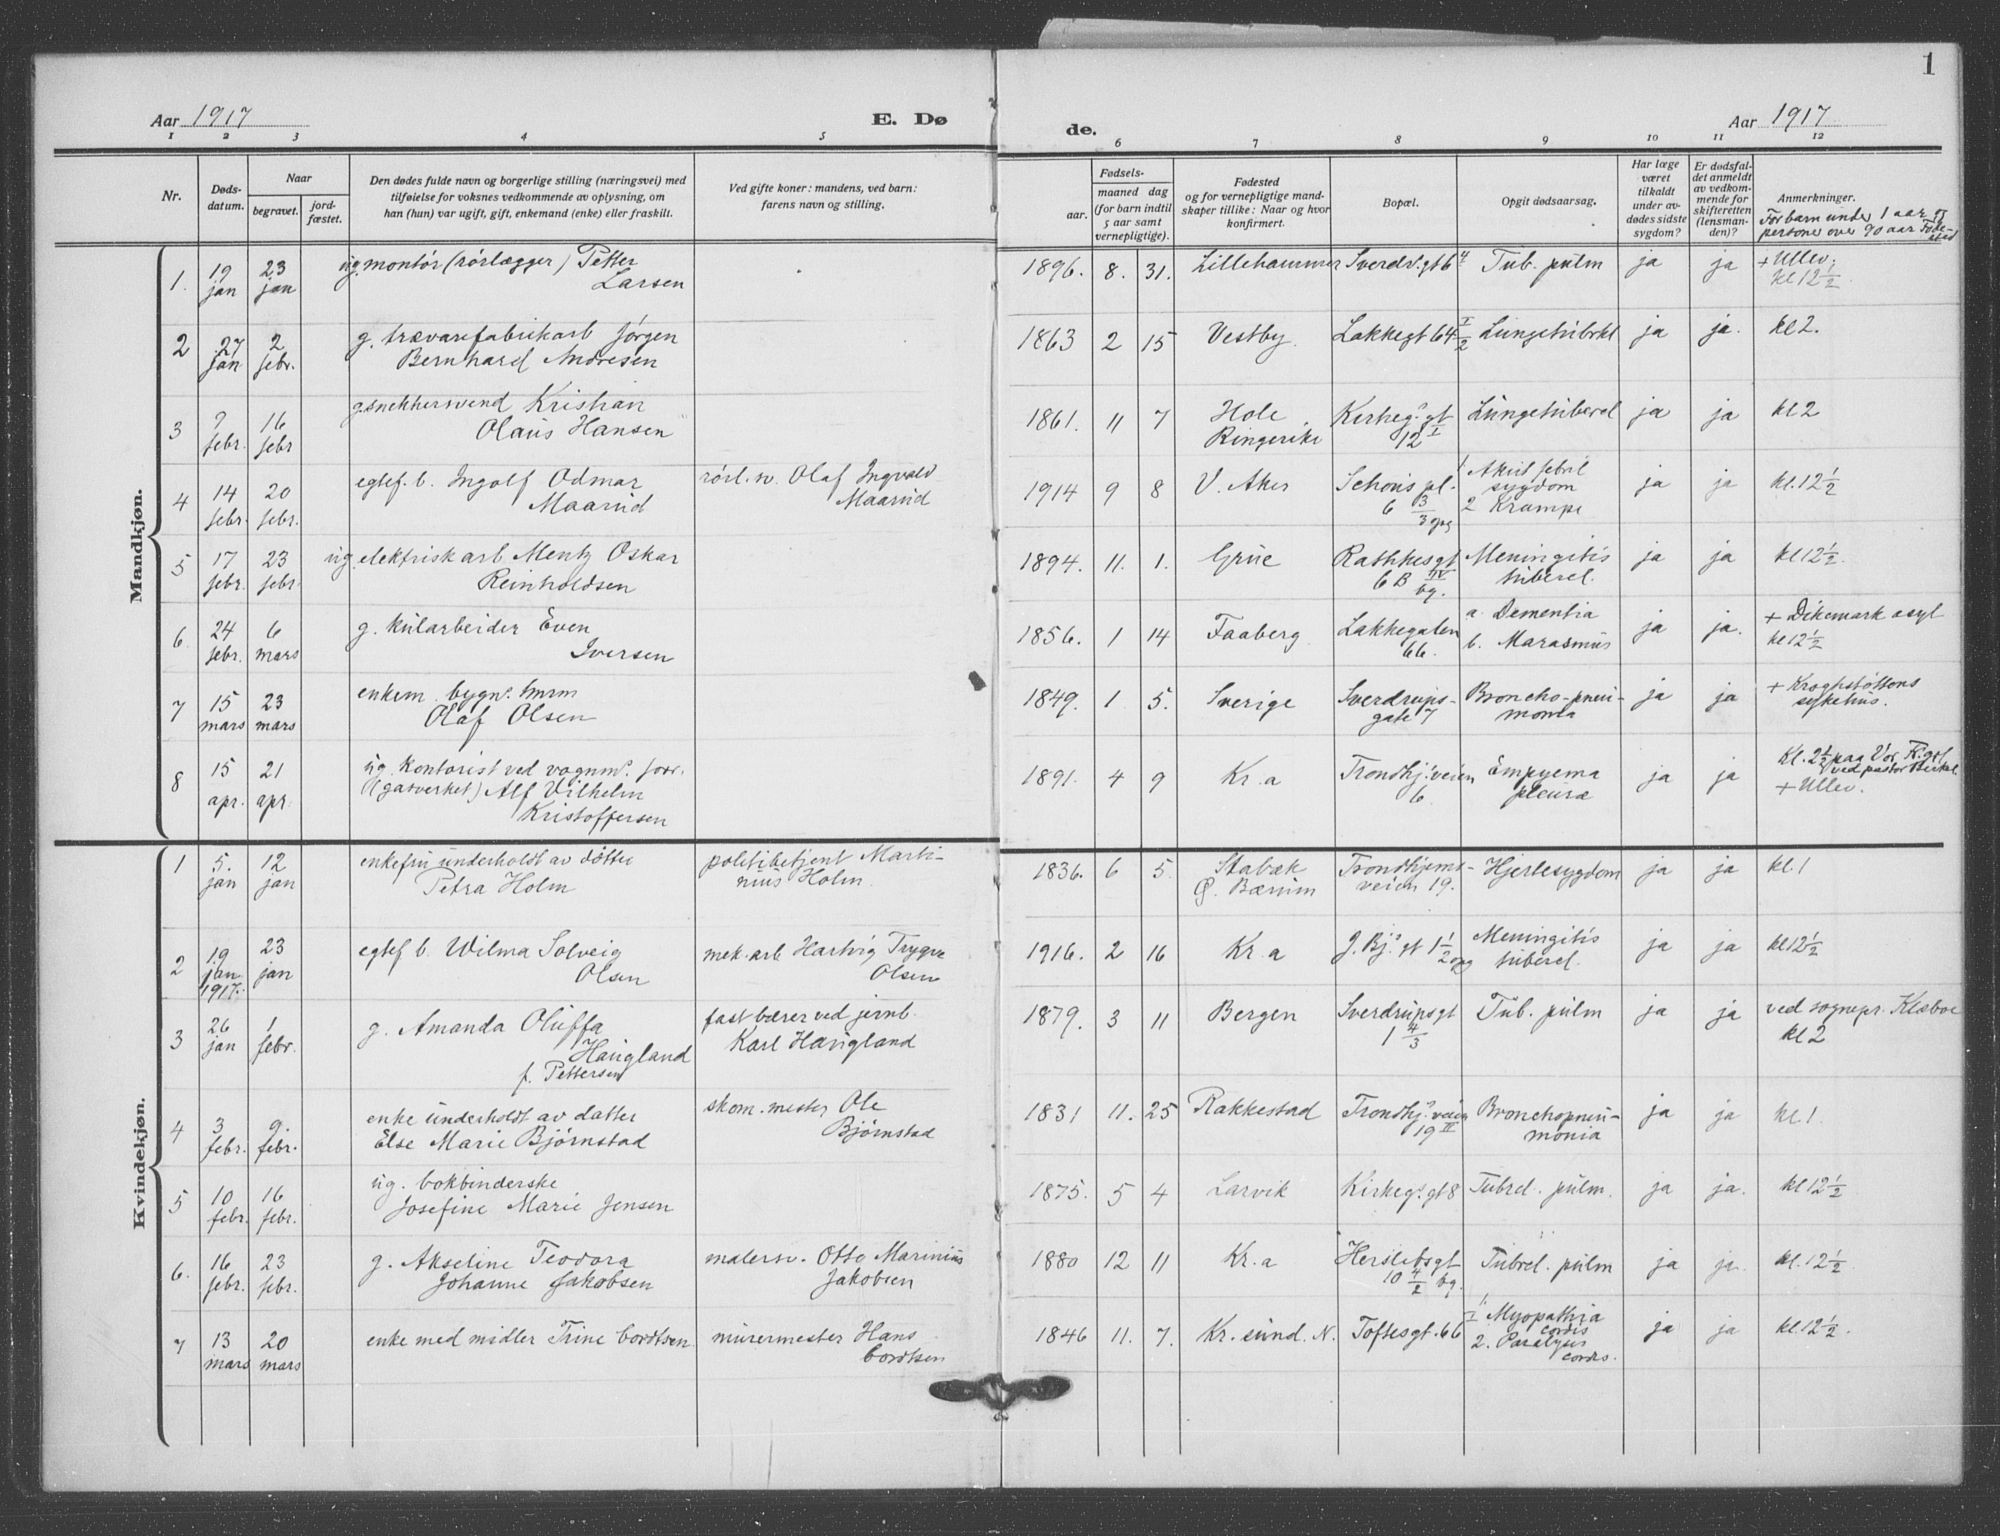 1
Aar 1917 E. Dø de. Aar 1917
1 2 3 4 5 6 7 8 9 10 11 12
Nr.
Døds-
datum.
Naar
begravet.
jord-
fæstet.
Den dødes fulde navn og borgerlige stilling (næringsvei) med
tilføielse for voksnes vedkommende av oplysning, om
han (hun) var ugift, gift, enkemand (enke) eller fraskilt.
Ved gifte koner: mandens, ved barn:
farens navn og stilling.
Fødsels-
aar.
maaned dag
(for barn indtil
5 aar samt
vernepligtige).
Fødested
og for vernepligtige mand-
skaper tillike: Naar og hvor
konfirmert.
Bopæl.
Opgit dødsaarsag.
Har læge
været
tilkaldt
under av-
dødes sidste
sygdom?
Er dødsfal-
det anmeldt
av vedkom-
mende for
skifteretten
(lensman-
den)?
Anmerkninger.
For barn under 1 aar og
persone over 90 aar Føde-
sted
Mandkjøn.
1. 19 jan 23 jan ug montør (rørlægger) Petter
Larsen
1896. 8. 31. Lillehammer Sverdr. gt 6 4 Tub. pulm ja ja + Ullev.
kl 12 1/2
2 27 jan 2 febr. g. trævarefabrikarb Jørgen
Bernhard Andresen
1863 2 15 Vestby. Lakkegt 64 I/2 Lungetubrkl ja ja. kl 2.
3 9 febr. 16 febr g. snekkersvend Kristian
Olaus Hansen
1861. 11 7 Hole
Ringerike
Kirkeg. gt
12 I
Lungetuberel ja ja kl 2
4 14 febr. 20 febr. egtef. b. Ingolf Odmar
Maarud
rørl. sv. Olaf Ingvald
Maarud
1914 9 8 V. Aker Schous pl.
6 B/3 opg
1 Akut febril
sygdom
2 Krampe
ja ja kl. 12 1/2
5 17 febr. 23 febr ug. elektriskarb Mentz Oskar
Reinholdsen
1894. 11. 1. Grue Rathkesgt
6 B IV/bg.
Meningitis
tuberel.
ja ja kl 12 1/2.
6 24 febr. 6 mars g. kularbeider Even
Iversen
1856. 1 14 Faaberg Lakkegaten
66.
a. Dementia
b. Marasmus
ja ja. + Dikemark asyl
kl 12 1/2
7 15 mars 23 mars enkem. bygn. tmrm
Olaf Olsen
1849. 1 5. Sverige Sverdrups-
gate 7
Broncho-pneu-
monia
ja ja + Kroghstøttens
sykehus.
8 15 apr. 21 apr. ug. kontorist ved vognm. forr.
(gasverket) Alf Vilhelm
Kristoffersen
1891. 4 9 Kr. a Trondhj. veien
6.
Empyema
pleuræ
ja ja kl. 2 1/2 paa Vor Fr. grl
ved pastor
+ Ullev.
Kvindekjøn.
1 5. jan 12 jan enkefru underholdt av døttre
Petra Holm
politibetjent Marti-
nius Holm.
1836. 6 5. Stabæk
Ø. Bærum
Trondhjems-
veien 19.
Hjertesygdom ja ja kl. 1
2 19 jan 1917. 23 jan egtef b. Wilma Solveig
Olsen
mek. arb Hartvig Trygve
Olsen
1916. 2 16 Kr. a J. Bj. gt 1 1/2 opg Meningitis
tuberel.
ja ja kl 12 1/2
3 26 jan 1 febr. g. Amanda Oluffa
Haugland
f. Pettersen
fast bærer ved jernb.
Karl Haugland
1879. 3 11 Bergen Sverdrupsgt
1 4/3
Tub. pulm ja ja ved sognepr. Klæboe
kl 2
4 3 febr. 9. febr. enke underholdt av datter
Else Marie Bjørnstad
skom. mester Ole
Bjørnstad
1831 11. 25 Rakkestad Trondhj. veien
19 III
Bronchopneu-
monia
ja ja kl. 1.
5 10 febr. 16 febr. ug. bokbinderske
Josefine Marie Jensen
1875. 5 4 Larvik Kirkeg. gt 8 Tubrel. pulm. ja ja. kl 12 1/2
6. 16 febr. 23 febr. g. Akseline Teodora
Johanne Jakobsen
malersv. Otto Marinius
Jakobsen
1880 12 11 Kr. a Herslebsgt
10 4/2 bg.
Tubrel. pulm ja ja. kl. 12 1/2
7 13 mars 20 mars enke med midler Trine Cordtsen murermester Hans
Cordtsen
1846 11. 7. Kr. sund. N. Toftesgt. 66 1. Myopathia
cordis
2. Paralysis
cordis.
ja ja kl. 12 1/2.